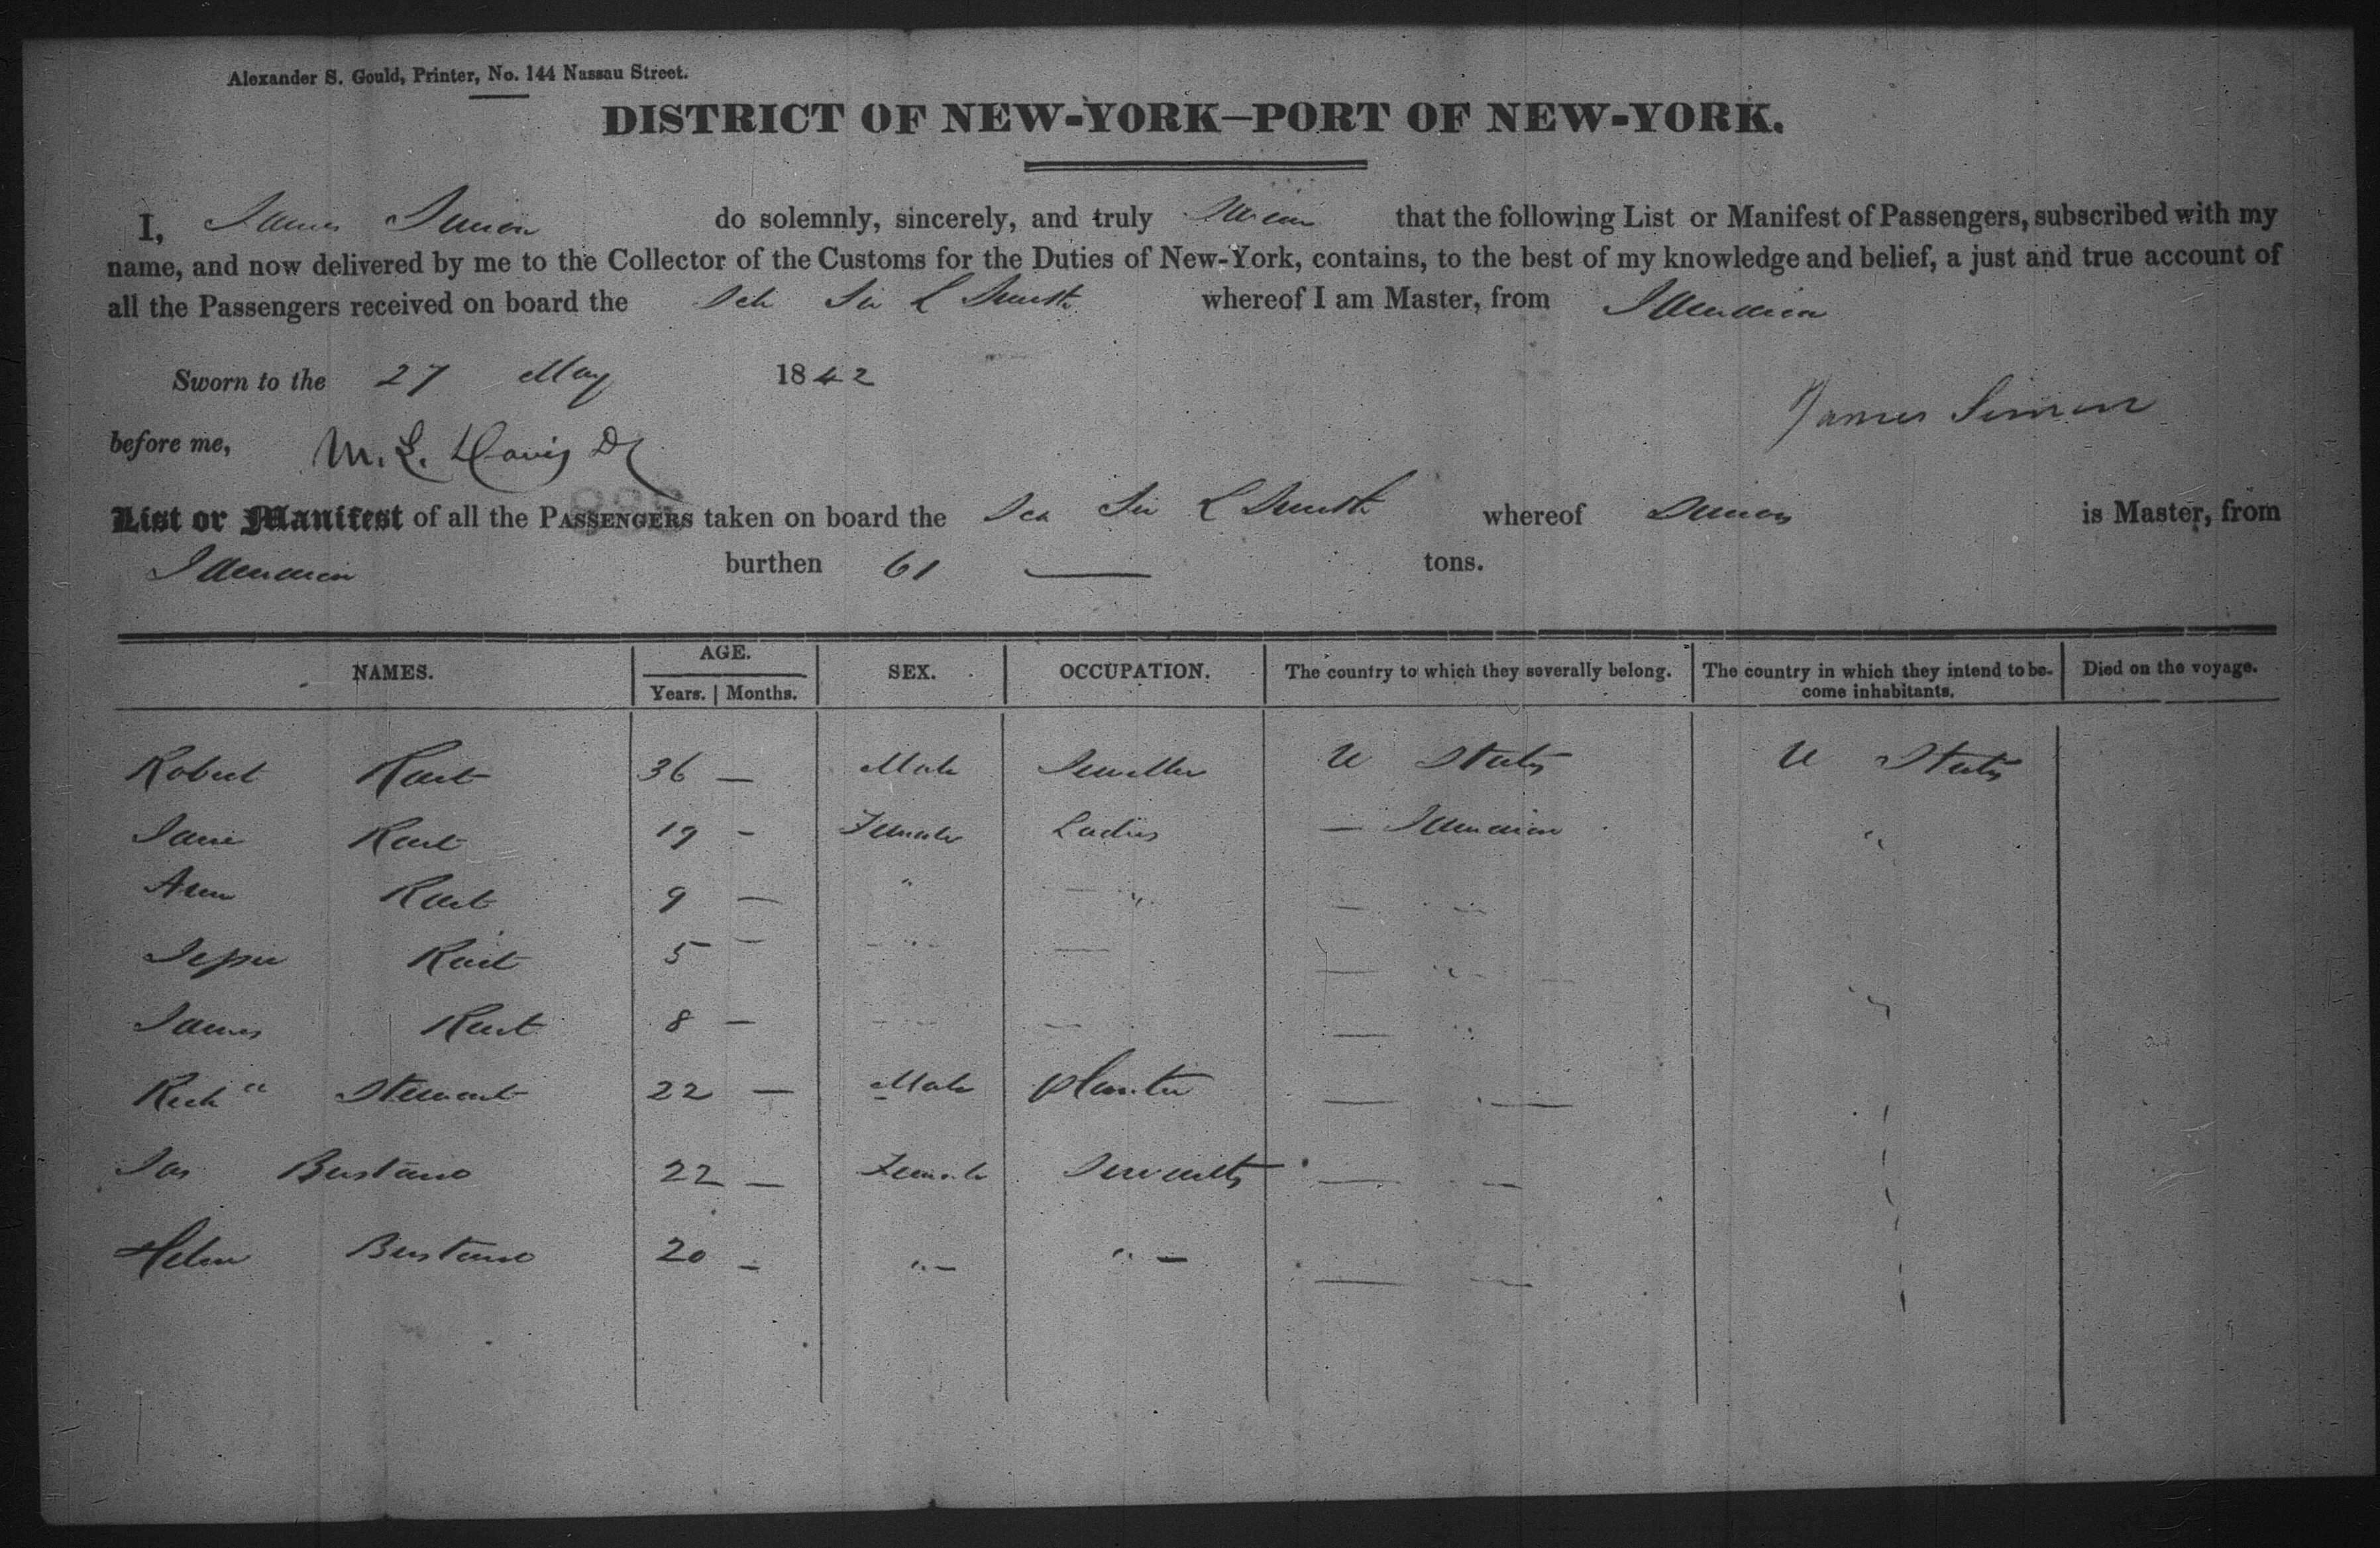 Alexander S. Gould, Printer, No. 144 Nassau Street.
DISTRICT OF NEW-YORK—PORT OF NEW-YORK.
I, James Simon do solemnly, sincerely, and truly Swear that the following List or Manifest of Passengers, subscribed with my
name, and now delivered by me to the Collector of the Customs for the Duties of New-York, contains, to the best of my knowledge and belief, a just and true account of
all the Passengers received on board the Sch Sir L Smith whereof I am Master, from Jamaica
Sworn to the 27 May 1842
James Simon
before me, M. L. Davis
List or Manifest of all the PASSENGERS taken on board the Sch Sir L Smith whereof Simon is Master, from
Jamaica burthen 61 — tons.
NAMES. AGE. Years. Months. SEX. OCCUPATION. The country to which they severally belong. The country in which they intend to become inhabitants. Died on the voyage.
Robert 36 — Male Jeweller U States U States
Jane 19 - Female Ladies — Jamaica "
Ann 9 — " — "
Jessie 5 —
James 8 —
Rich" Stewart 22 — Male planter
Jas 22 — Female Servants
Helen 20 - " — " —